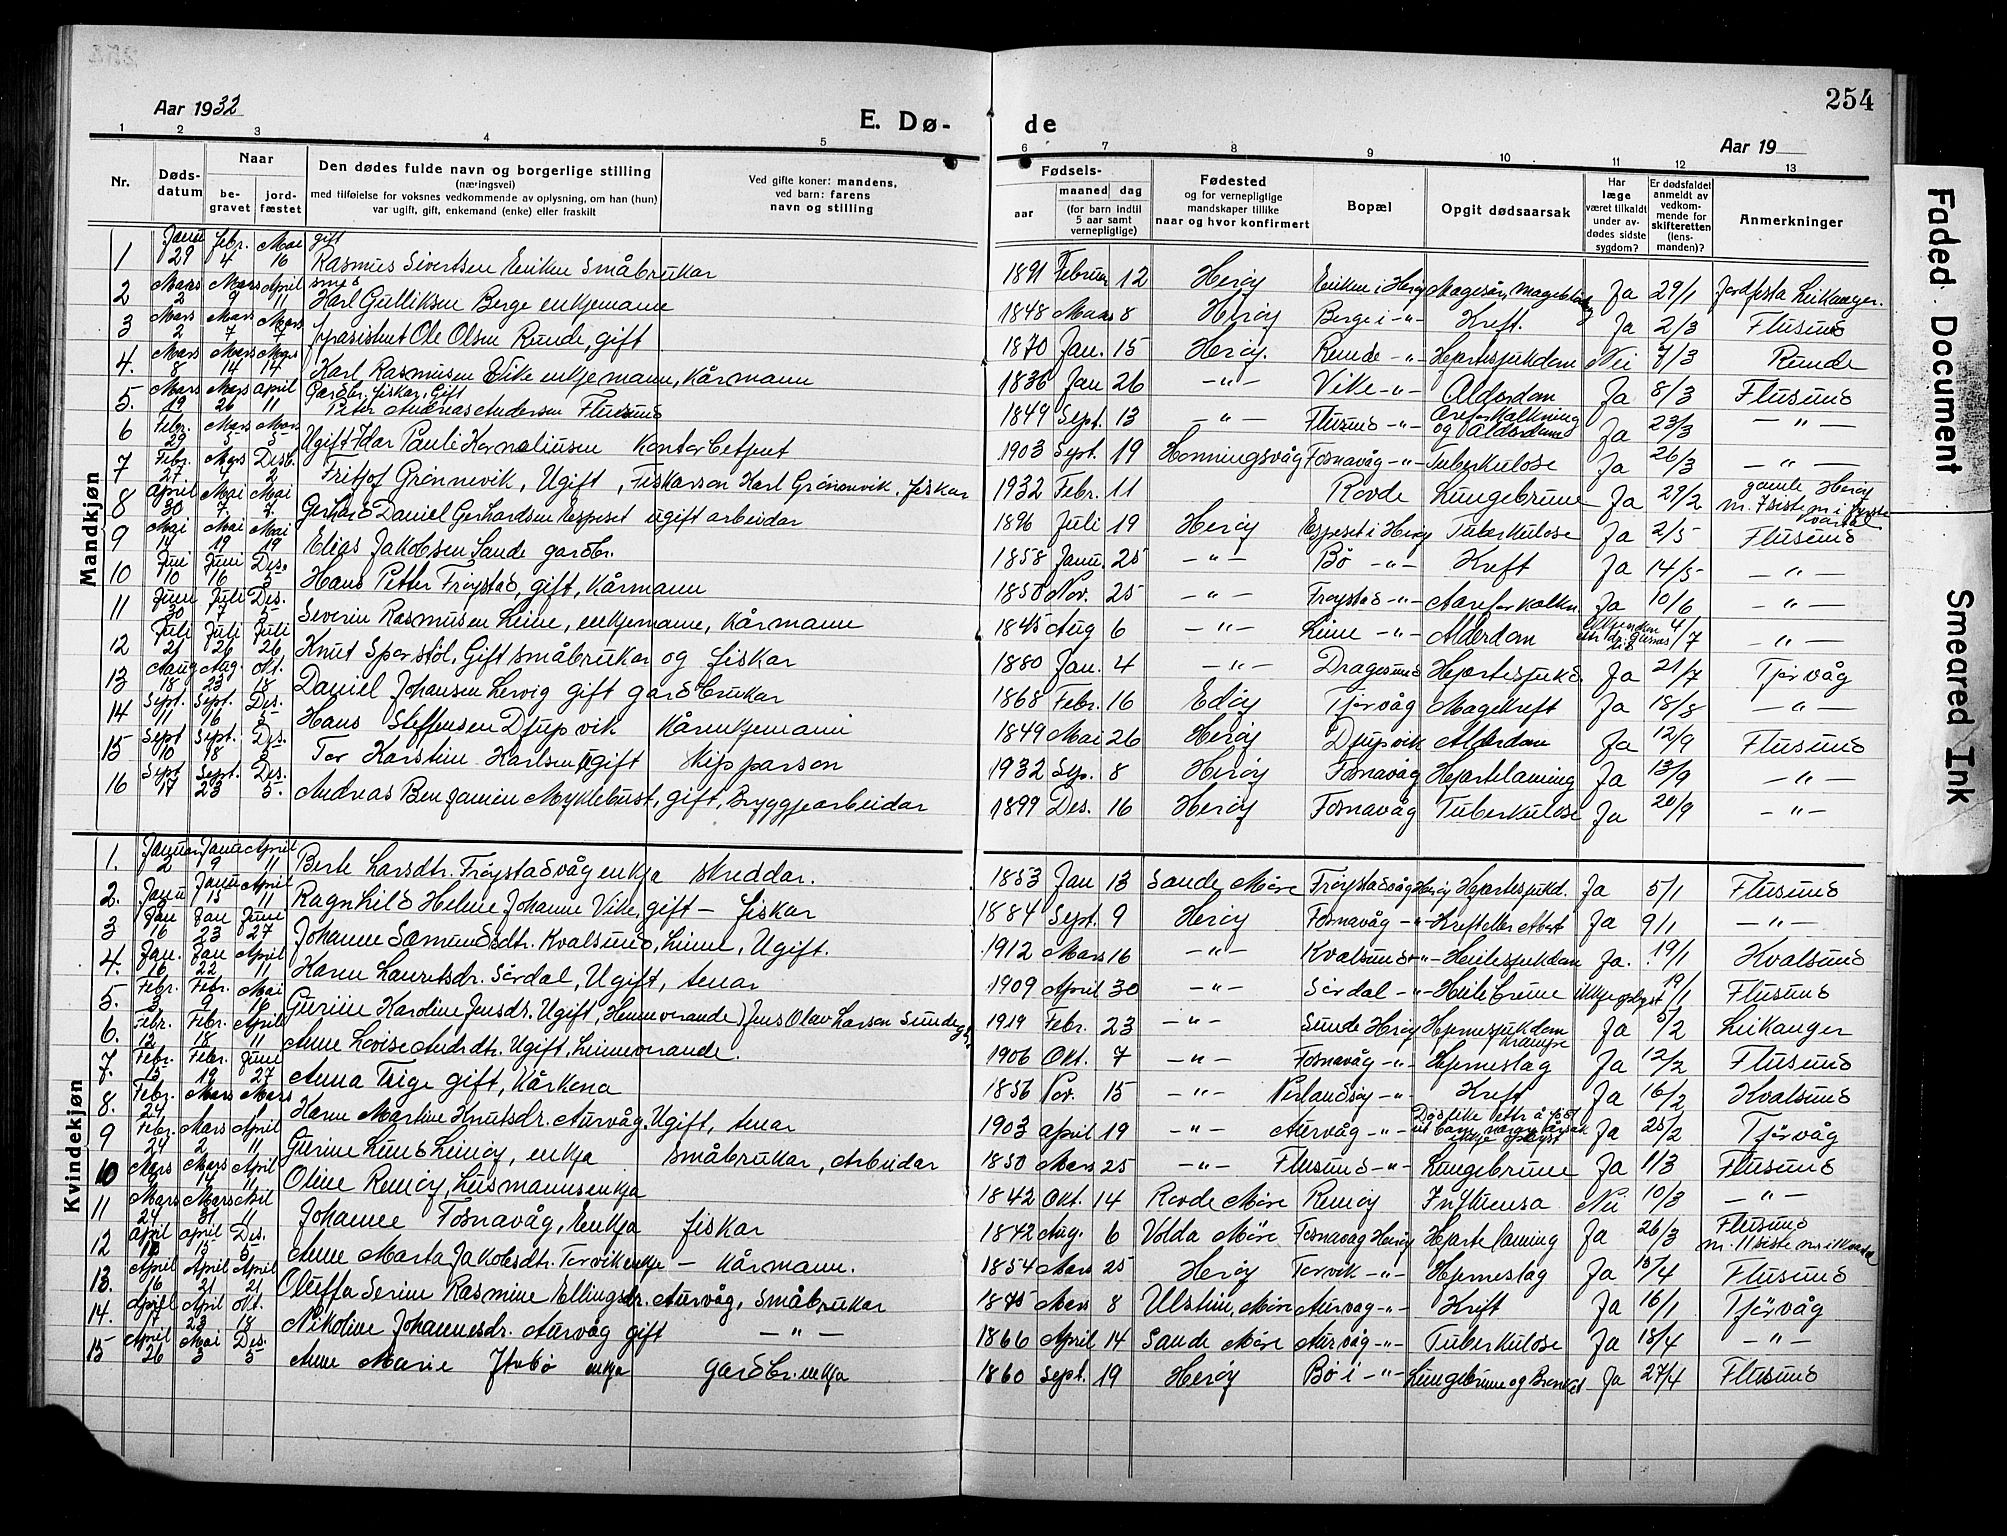 254
Aar 1932
E. Dø-
de
Aar 19
1 2 3 4 5 6 7 8 9 10 11 12 13
Nr.
Døds-
datum
Naar
be-
gravet
jord-
fæstet
Den dødes fulde navn og borgerlige stilling
(næringsvei)
med tilføielse for voksnes vedkommende av oplysning, om han (hun)
var ugift, gift, enkemand (enke) eller fraskilt
Ved gifte koner: mandens,
ved barn: farens
navn og stilling
Fødsels-
aar
maaned
dag
(for barn indtil
5 aar samt
vernepligtige)
Fødested
og for vernepligtige
mandskaper tillike
naar og hvor konfirmert
Bopæl
Opgit dødsaarsak
Har
læge
været tilkaldt
under av-
dødes sidste
sygdom?
Er dødsfaldet
anmeldt av
vedkom-
mende for
skifteretten
(lens-
manden)?
Anmerkninger
Mandkjøn
1 Janu 29 Febr. 4 Mai 16 gift Rasmus Sivertsen Eriken Småbrukar 1891 Februar 12 Herøy Eriken i Herøy Magesår, Ja 29/1 Jordfesta Leikanger.
2 Mars 2 Mars 9 April 11 smed Karl Gulliksen Berge enkjemann 1848 Mars 8 Herøy Berge i -"- Kreft. Ja 2/3 Flusund
3 Mars 2 Mars 7 Mars 7 Ole Olsen Runde, gift 1870 Jan. 15 Herøy. Runde -"- Hjartesjukdom Nei 7/3 Runde
4. Mars 8 Mars 14 Mars 14 Karl Rasmusen Vike enkjemann, Kårmann 1836 Jan 26 -"- Vike -"- Alderdom Ja 8/3 Flusund
5. Mars 19 Mars 26 April 11 Gardbr. Fiskar, Gift Peter Andreas Andersen Flusund 1849 Sept. 13 -"- Flusund -"- Åreforkalkning og Alderdom Ja 23/3 -"-
6 Febr. 29 Mars 5 Mars 5 Ugift Idar Pauli Korneliusen Kontorbetjent 1903 Sept. 19 Honningsvåg Fosnavåg -"- Tuberkulose Ja 26/3 -"-
7 Febr. 27 Mars Desb. 2 Fritjof Grønnevik, Ugift, Fiskarson Karl Grønnevik, fiskar 1932 Febr. 11 Rovde Lungebrune Ja 29/2 gamle Herøy nr. 7 siste nr i fyrste kvartal
8 April 30 Mai 7. Mai 7. Gerhard Daniel Gerhardsen Espeset ugift arbeidar 1896 Juli 19 Herøy Espeset i Herøy Tuberkulose Ja 2/5 Flusund
9 Mai Mai 19 Mai 19 Elias Jakobsen Sande gardbr. 1858 Janu. 25 -"- Bø -"- Kreft Ja 14/5 -"-
10 Juni 10 Juni 16 Des. 5 Hans Petter Frøystad, gift, Kårmann 1850 Nov. 25 -"- Frøystad -"- Aareforkalkn. Ja 10/6 -"-
11 Juni 30 Juli 7 Des. 5 Severin Rasmusen Leine, enkjemann, Kårmann 1845 Aug 6 -"- Leine -"- Alderdom 4/7 -"-
12 Juli 21 Juli 26 Juli 26 Knut Sperstøl, Gift småbrukar og fiskar 1880 Jan. 4 -"- Dragesund Hjartesjukd. Ja 21/7 Tjørvåg
13 Aug 18 Aug. 23 Okt. 18 Daniel Johansen Lervig gift gardbrukar 1868 Febr. 16 Edøy Tjørvåg Magekreft Ja 18/8 -"-
14 Sept. 11 Sept. 16 Des. 5 Hans Steffensen Djupvik Kårenkjemann 1849 Mai 26 Herøy Djupvik Alderdom Ja 12/9 Flusund
15 Sept 10 Sept. 18 Des. 5 Tor Karstein Karlsen Ugift skipparson 1932 Sep. 8 Herøy Fosnavåg Hjartelaming Ja 13/9 -"-
16 Sept 17 Sept. 23 Des. 5. Andreas Benjamin Myklebust, gift, Bryggjearbeidar 1899 Des. 16 Herøy Fosnavåg Tuberkulose Ja 20/9 -"-
Kvindekjøn
1. Januar 2 Janu 9 April 11 Berte Larsdtr. Frøystadvåg enkja skreddar. 1853 Jan 13 Sande, Møre Frøystadvåg Herøy Hjartesjukd. Ja 5/1 Flusund
2. Janu Janu 15 April 11 Ragnhild Helene Johanne Vike, gift - fiskar 1884 Sept. 9 Herøy Fosnavåg -"- Ja 9/1 -"-
3 Jan 16 Jan 23 June 27 Johanne Sæmundsdtr. Kvalsund, Leine, Ugift. 1912 Mars 16 -"- Kvalsund -"- Ja. 19/1 Kvalsund
4. Jan. 16 Jan 22 April 11 Karen Lauritsdr. Sørdal, Ugift, tenar 1909 April 30 -"- Sørdal -"- ikkje oplyst 19/1 Flusund
5. Febr. 3 Febr. 9 Mai Gurine Karoline Jensdr. Ugift, Heimeverande Jens Olav Larsen Sunde 1919 Febr. 23 -"- Sunde Herøy Hjernesjukdom Krampe Ja 5/2 Leikanger
6. Febr. 12 Febr. 18 April 11 Anne Lovise Andrdtr. Ugift, heimeverande. 1906 Okt. 7 -"- Fosnavåg -"- Hjerneslag Ja 12/2 Flusund
7. Febr. 15 Febr. 19 June 27 Anna Teige gift, Kårkona 1856 Nov. 15 -"- Nerlandsøy -"- Kreft Ja 16/2 Kvalsund
8. Febr. 24 Mars Mars Karen Martine Knutsdr. Aurvåg, Ugift, tenar 1903 April 19 -"- Aurvåg -"- Ja 25/2 Tjørvåg
9 Febr. 24 Mars 2 April 11 Gurine Lund Leinøy, enkja småbrukar, Arbeidar 1850 Mars 25 -"- Flusund -"- Lungebrune Ja 1/3 Flusund
10 Mars 9 Mars 14 April 11 Oline Remøy, Husmannsenkja 1842 Okt. 14 Rovde Møre Remøy Influensa Nei 10/3 -"-
11 Mars 24 Mars 31 April 11 Johanne Fosnavåg, Enkja fiskar 1842 Aug. 6 Volda Møre Fosnavåg Herøy Hjartelaming Ja 26/3 Flusund nr. 11 siste nr i kvartal
12 April April 15 Des. 5 Anne Marta Jakobsdtr. Torvik enkje - Kårmann. 1854 Mars 25 Herøy Torvik -"- Hjerneslag Ja 15/4 Flusund
13. April 16 April 21 April 21 Oluffa Serine Rasmine Ellingsdr. Aurvåg, Småbrukar 1875 Mars 8 Ulstein, Møre Aurvåg -"- Kreft Ja 16/1 Tjørvåg
14. April 17 April 23 Okt. 18 Nikoline Johannesdr. Aurvåg gift -"- 1866 April 14 Sande Møre Aurvåg -"- Tuberkulose Ja 18/4 -"-
15 April 26 Mai 3 Des. 5 Anne Marie Ytrebø enkja gardbr.enkja 1860 Sept. 19 Herøy Bø i -"- Lungebrune og Bronkit Ja 27/4 Flusund
Faded Document
Smeared Ink